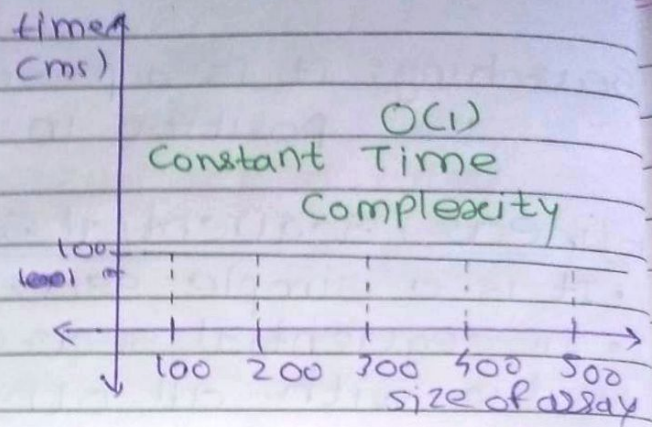 time
(ms)
O(1)
Constant Time
Complexity
100
100 200 300 400 500
size of array